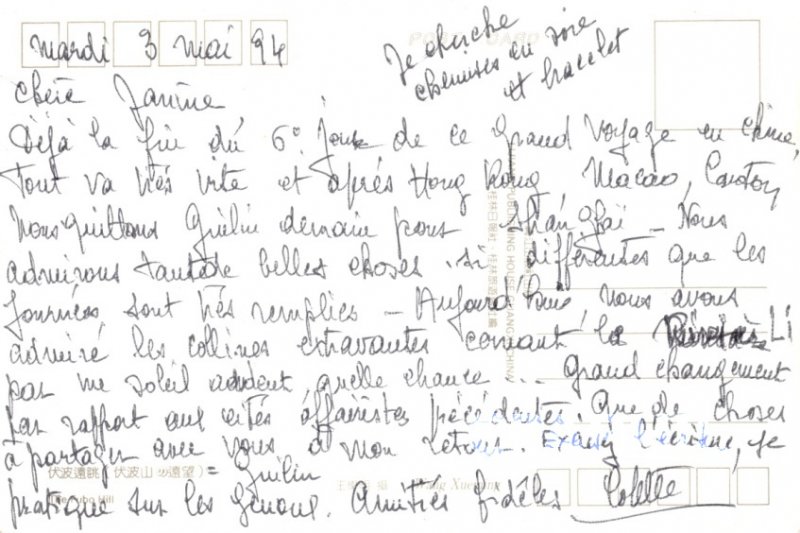 mardi 3 mai 94
Je cherche
chemises en soie
et bracelet
POST CARD
chère Janine
Déjà la fin du 6° jour de ce grand voyage en chine,
Tout va très vite et après Hong Kong Macao, Canton
Nous quittons Guilin demain pour Shangaï - Nous
admirons tant de belles choses si différentes que les
journées sont très remplies - Aujourd'hui nous avons
admiré les collines longeant la Li
par un soleil ardent, quelle chance... grand changement
par rapport aux cités affairistes précédentes. Que de choses
à partager avec vous à mon retour. Excusez l'écriture, je
伏波遠眺 (伏波山の遠望) = Guilin
pratique sur les genoux. Amitiés fidèles Colette
Fubo Hill